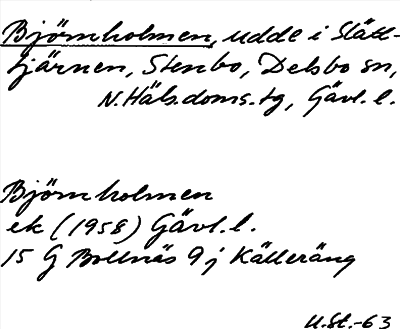 Björnholmen, udde i Slätt-
tjärnen, Stenbo, Delsbo sn,
N. Häls. doms. tg, Gävl. l.
Björnholmen
ek (1958) Gävl. l.
15 G Bollnäs 9 j Källeräng
U. St. -63